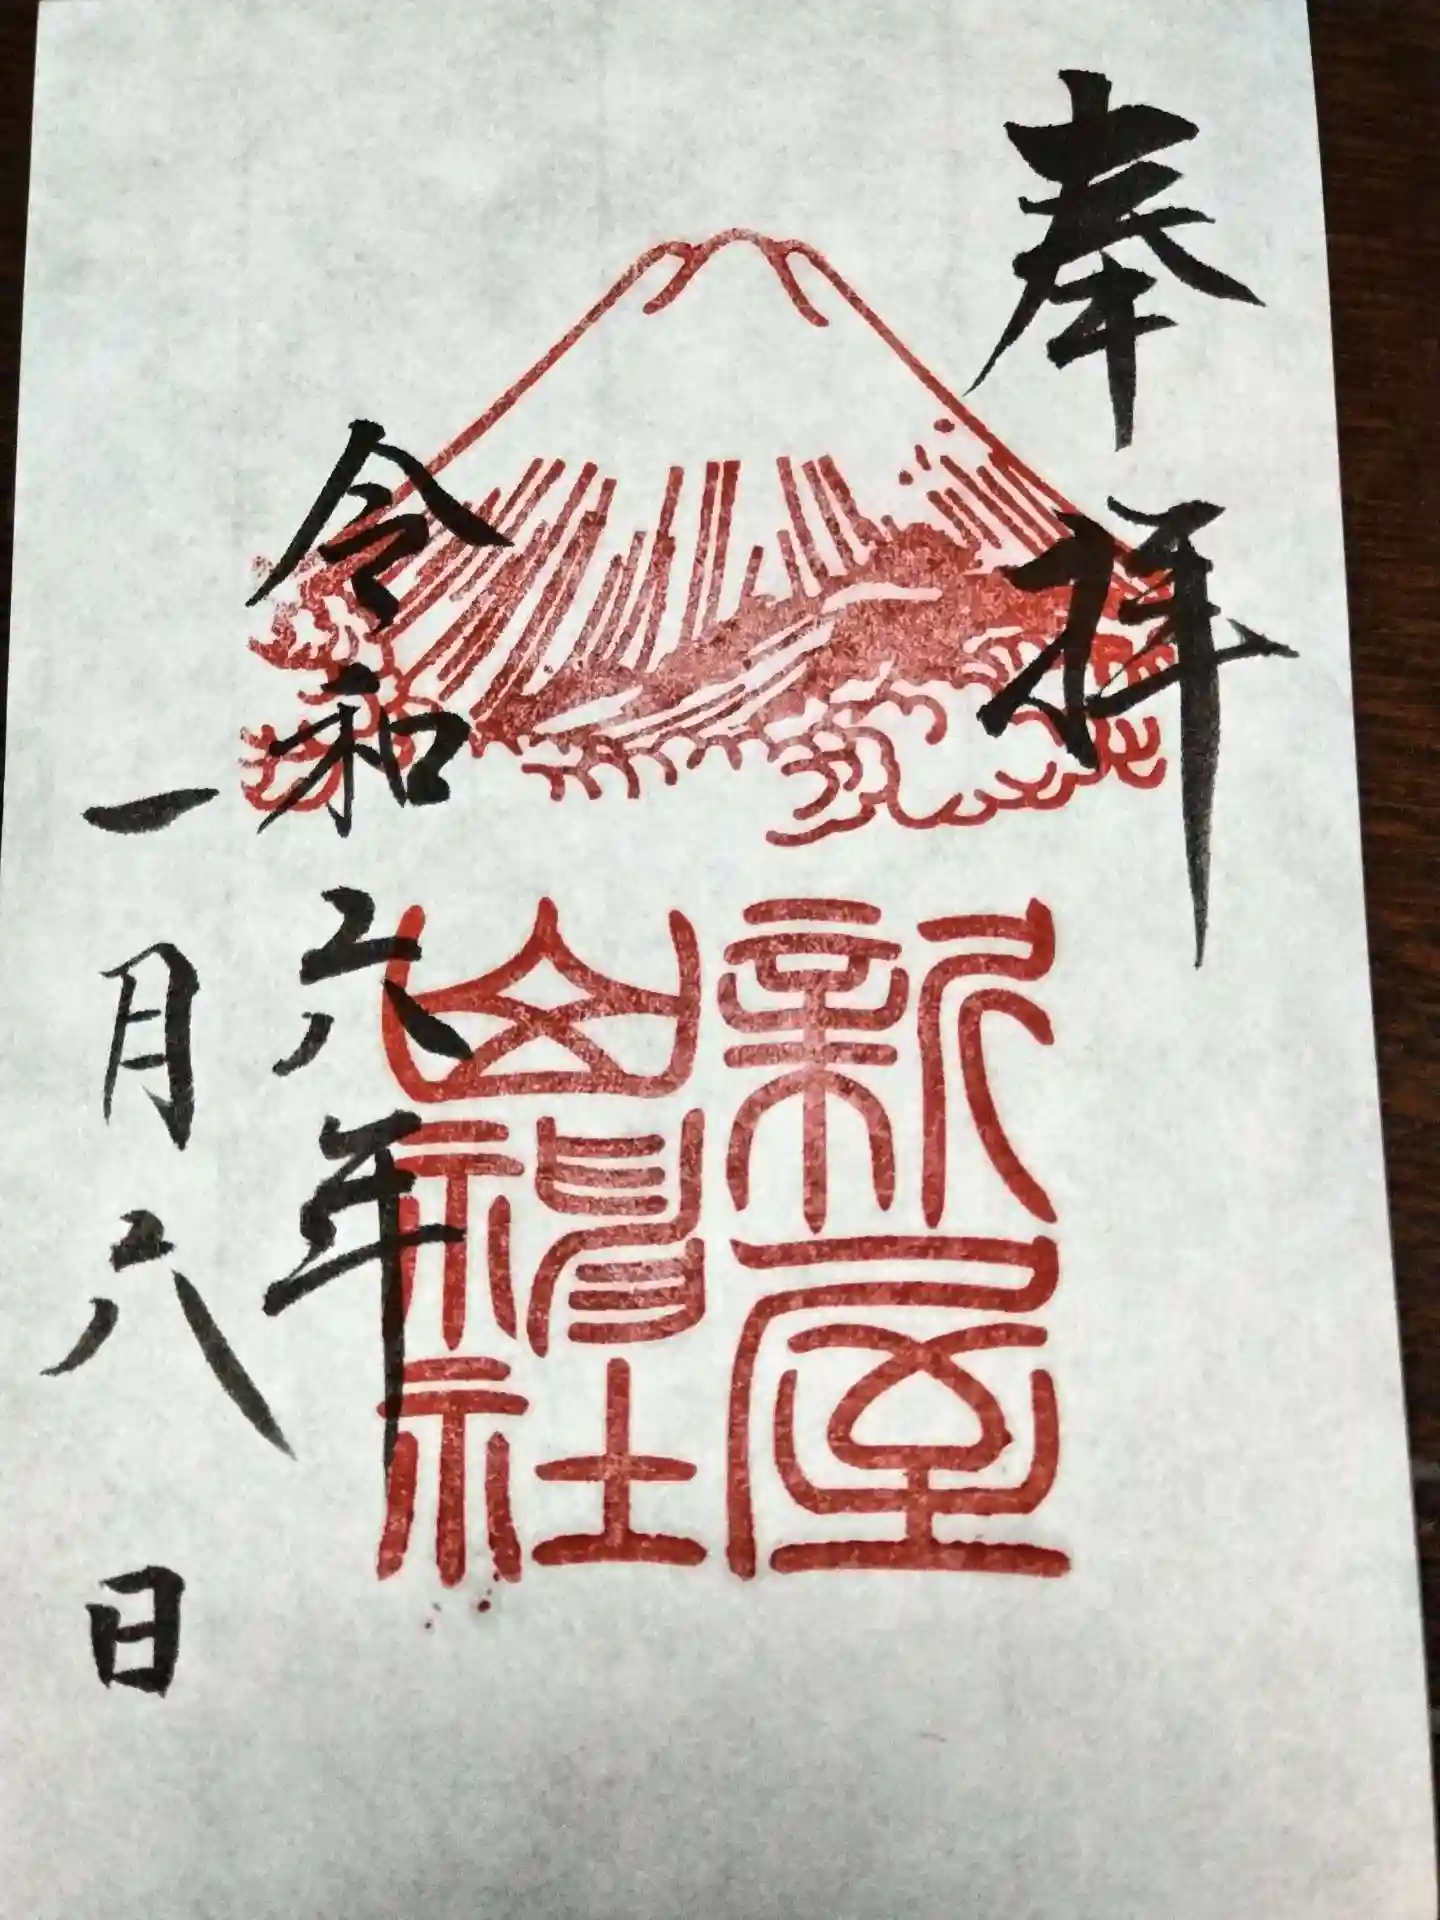 奉拝
新屋
山神社
令和六年
一月八日